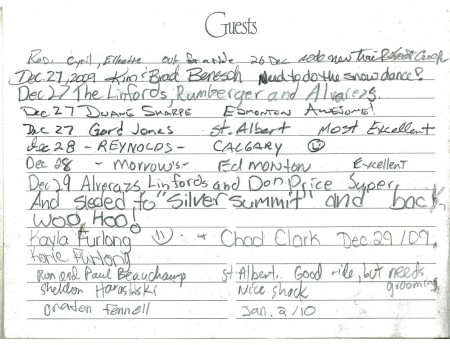 Guests
Rod, Cyril, out for a ride 26 Dec new trail
Dec. 27, 2009 Kim & Brad Benesch Need to do the snow dance?
Dec 27 The Linfords, Rumberger and Alvarezs.
Dec 27 Duane Sharpe Edmonton Awesome!
Dec 27 Gord Jones St. Albert Most Excellent
Dec 28 - Reynolds - Calgary
Dec 28 - Morrow's - Edmonton Excellent
Dec 29 Alverazs, Linfords and Don Price Super
And sleded to "Silver Summit" and back,
Woo, Hoo!
Kayla Furlong - Chad Clark Dec. 29/09.
Korie Furlong
Ron and Paul Beauchamp St Albert. Good ride, but needs grooming
Sheldon Nice shack
Braden Fennell Jan. 2/10